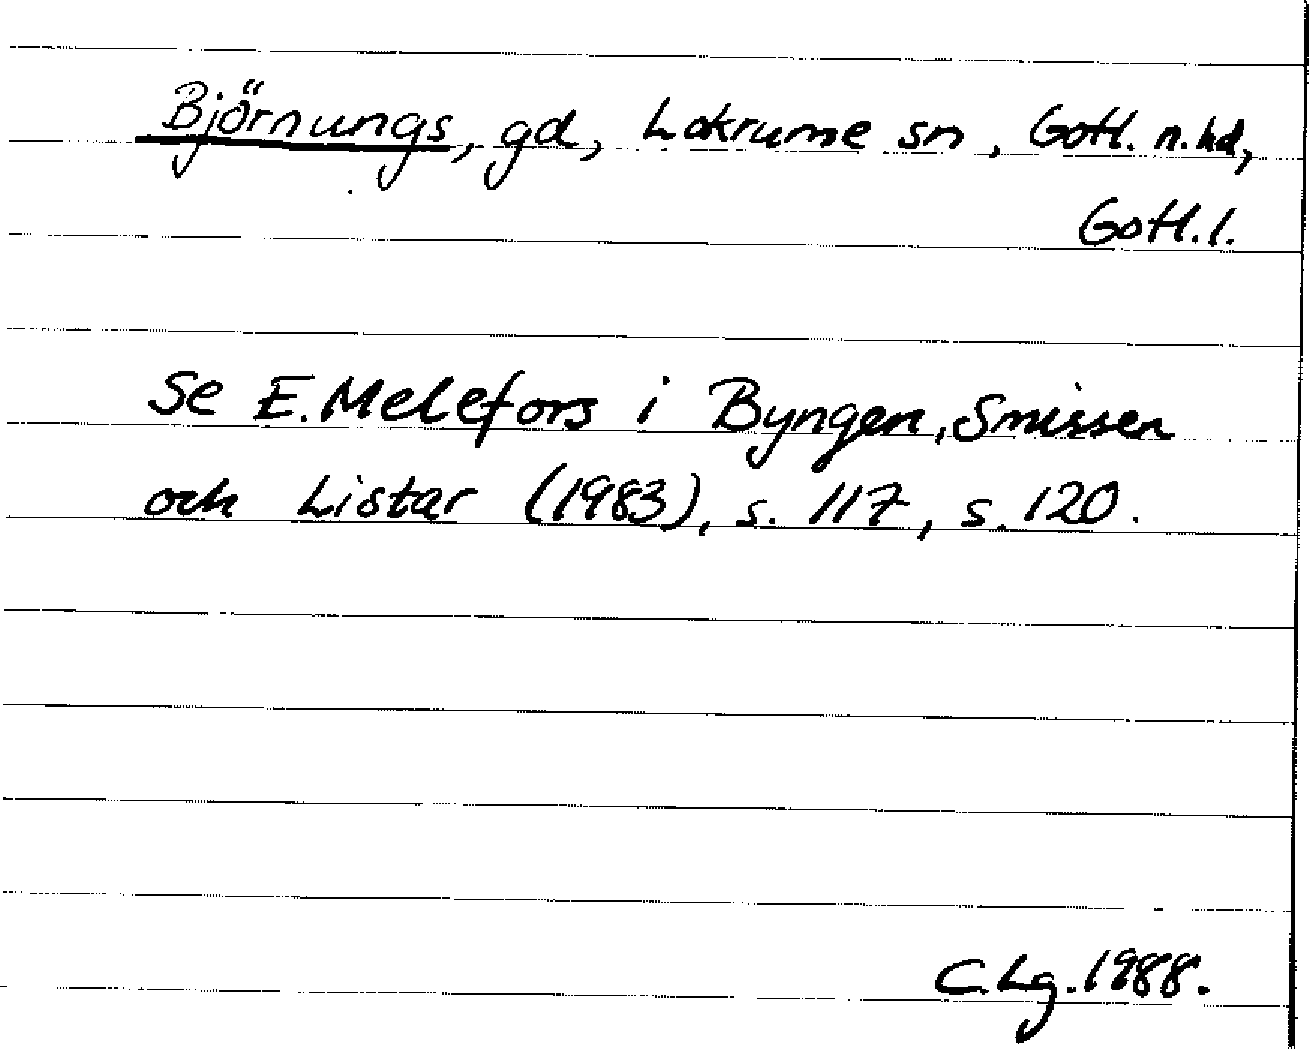 Björnungs, gd, Lokrume sn, Gotl. n. hd,
Gotl. l.
Se E. Melefors i Byngen, Smissen
och Listar (1983), s. 117, s. 120.
C. Lg. 1988.